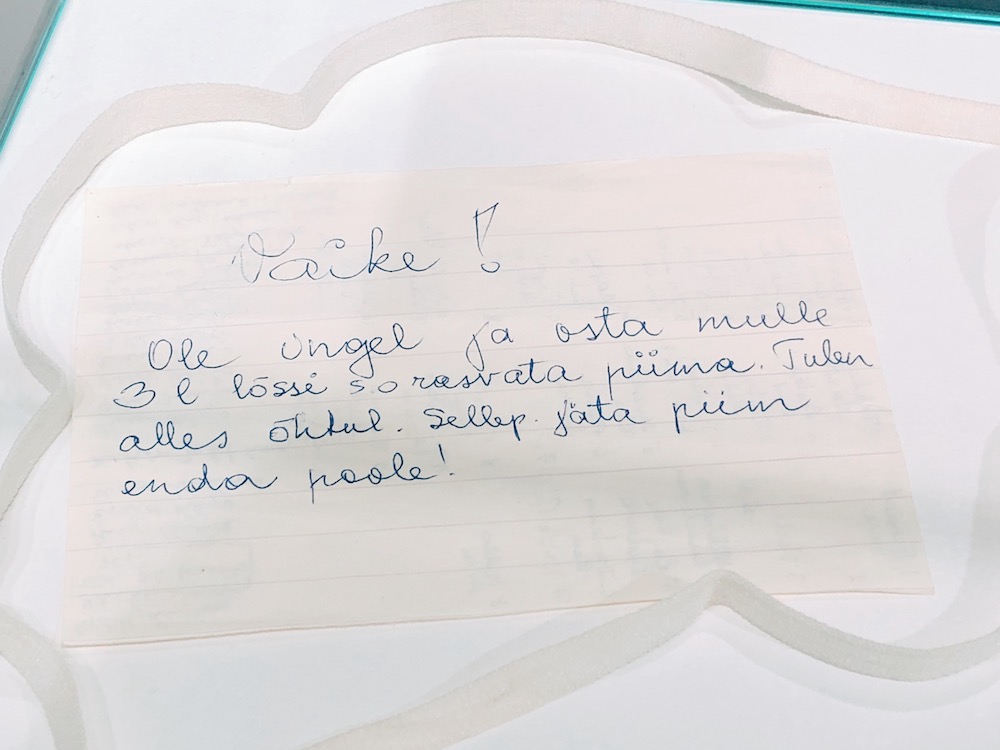 Väike!
Ole ingel ja osta mulle
3 l lõssi s.o rasvata piima. Tulen
alles õhtul. Sellep. jäta piim
enda poole!